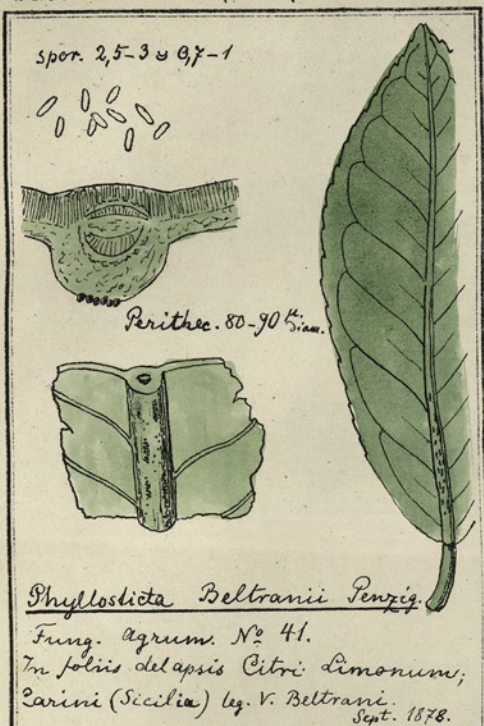 spor. 2,5-3 ≈ 0,7-1
Perithec. 80-90 µ. Diam.
Phyllosticta Beltranii Penzig.
Fung. agrum. Nº 41.
In foliis delapsis Citri Limonum;
Carini (Sicilia) leg. V. Beltrani.
Sept. 1878.